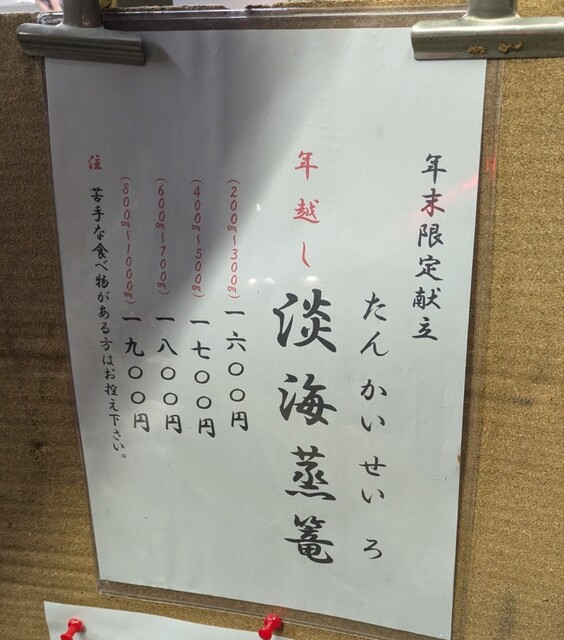 年末限定献立
たんかいせいろ
年越し 淡海蒸篭
(200g〜300g) 一六〇〇円
(400g〜500g) 一七〇〇円
(600g〜700g) 一八〇〇円
(800g〜1000g) 一九〇〇円
注 苦手な食べ物がある方はお控え下さい。